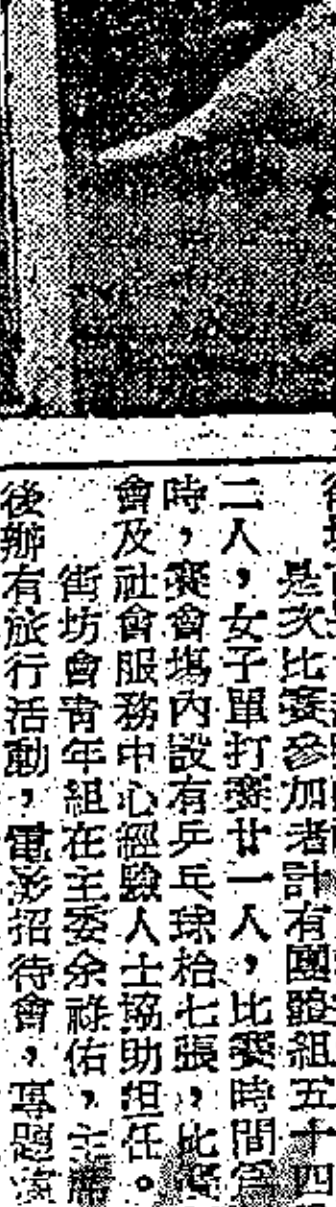 是次比賽參加者計有團體組五十四
二人，女子單打賽廿一人，比賽時間
時，賽會場內設有乒乓球枱七張，比
會及社會服務中心經驗人士協助担任。
街坊會青年組在主委余祿佑，主席
後辦有旅行活動，電影招待會，專題